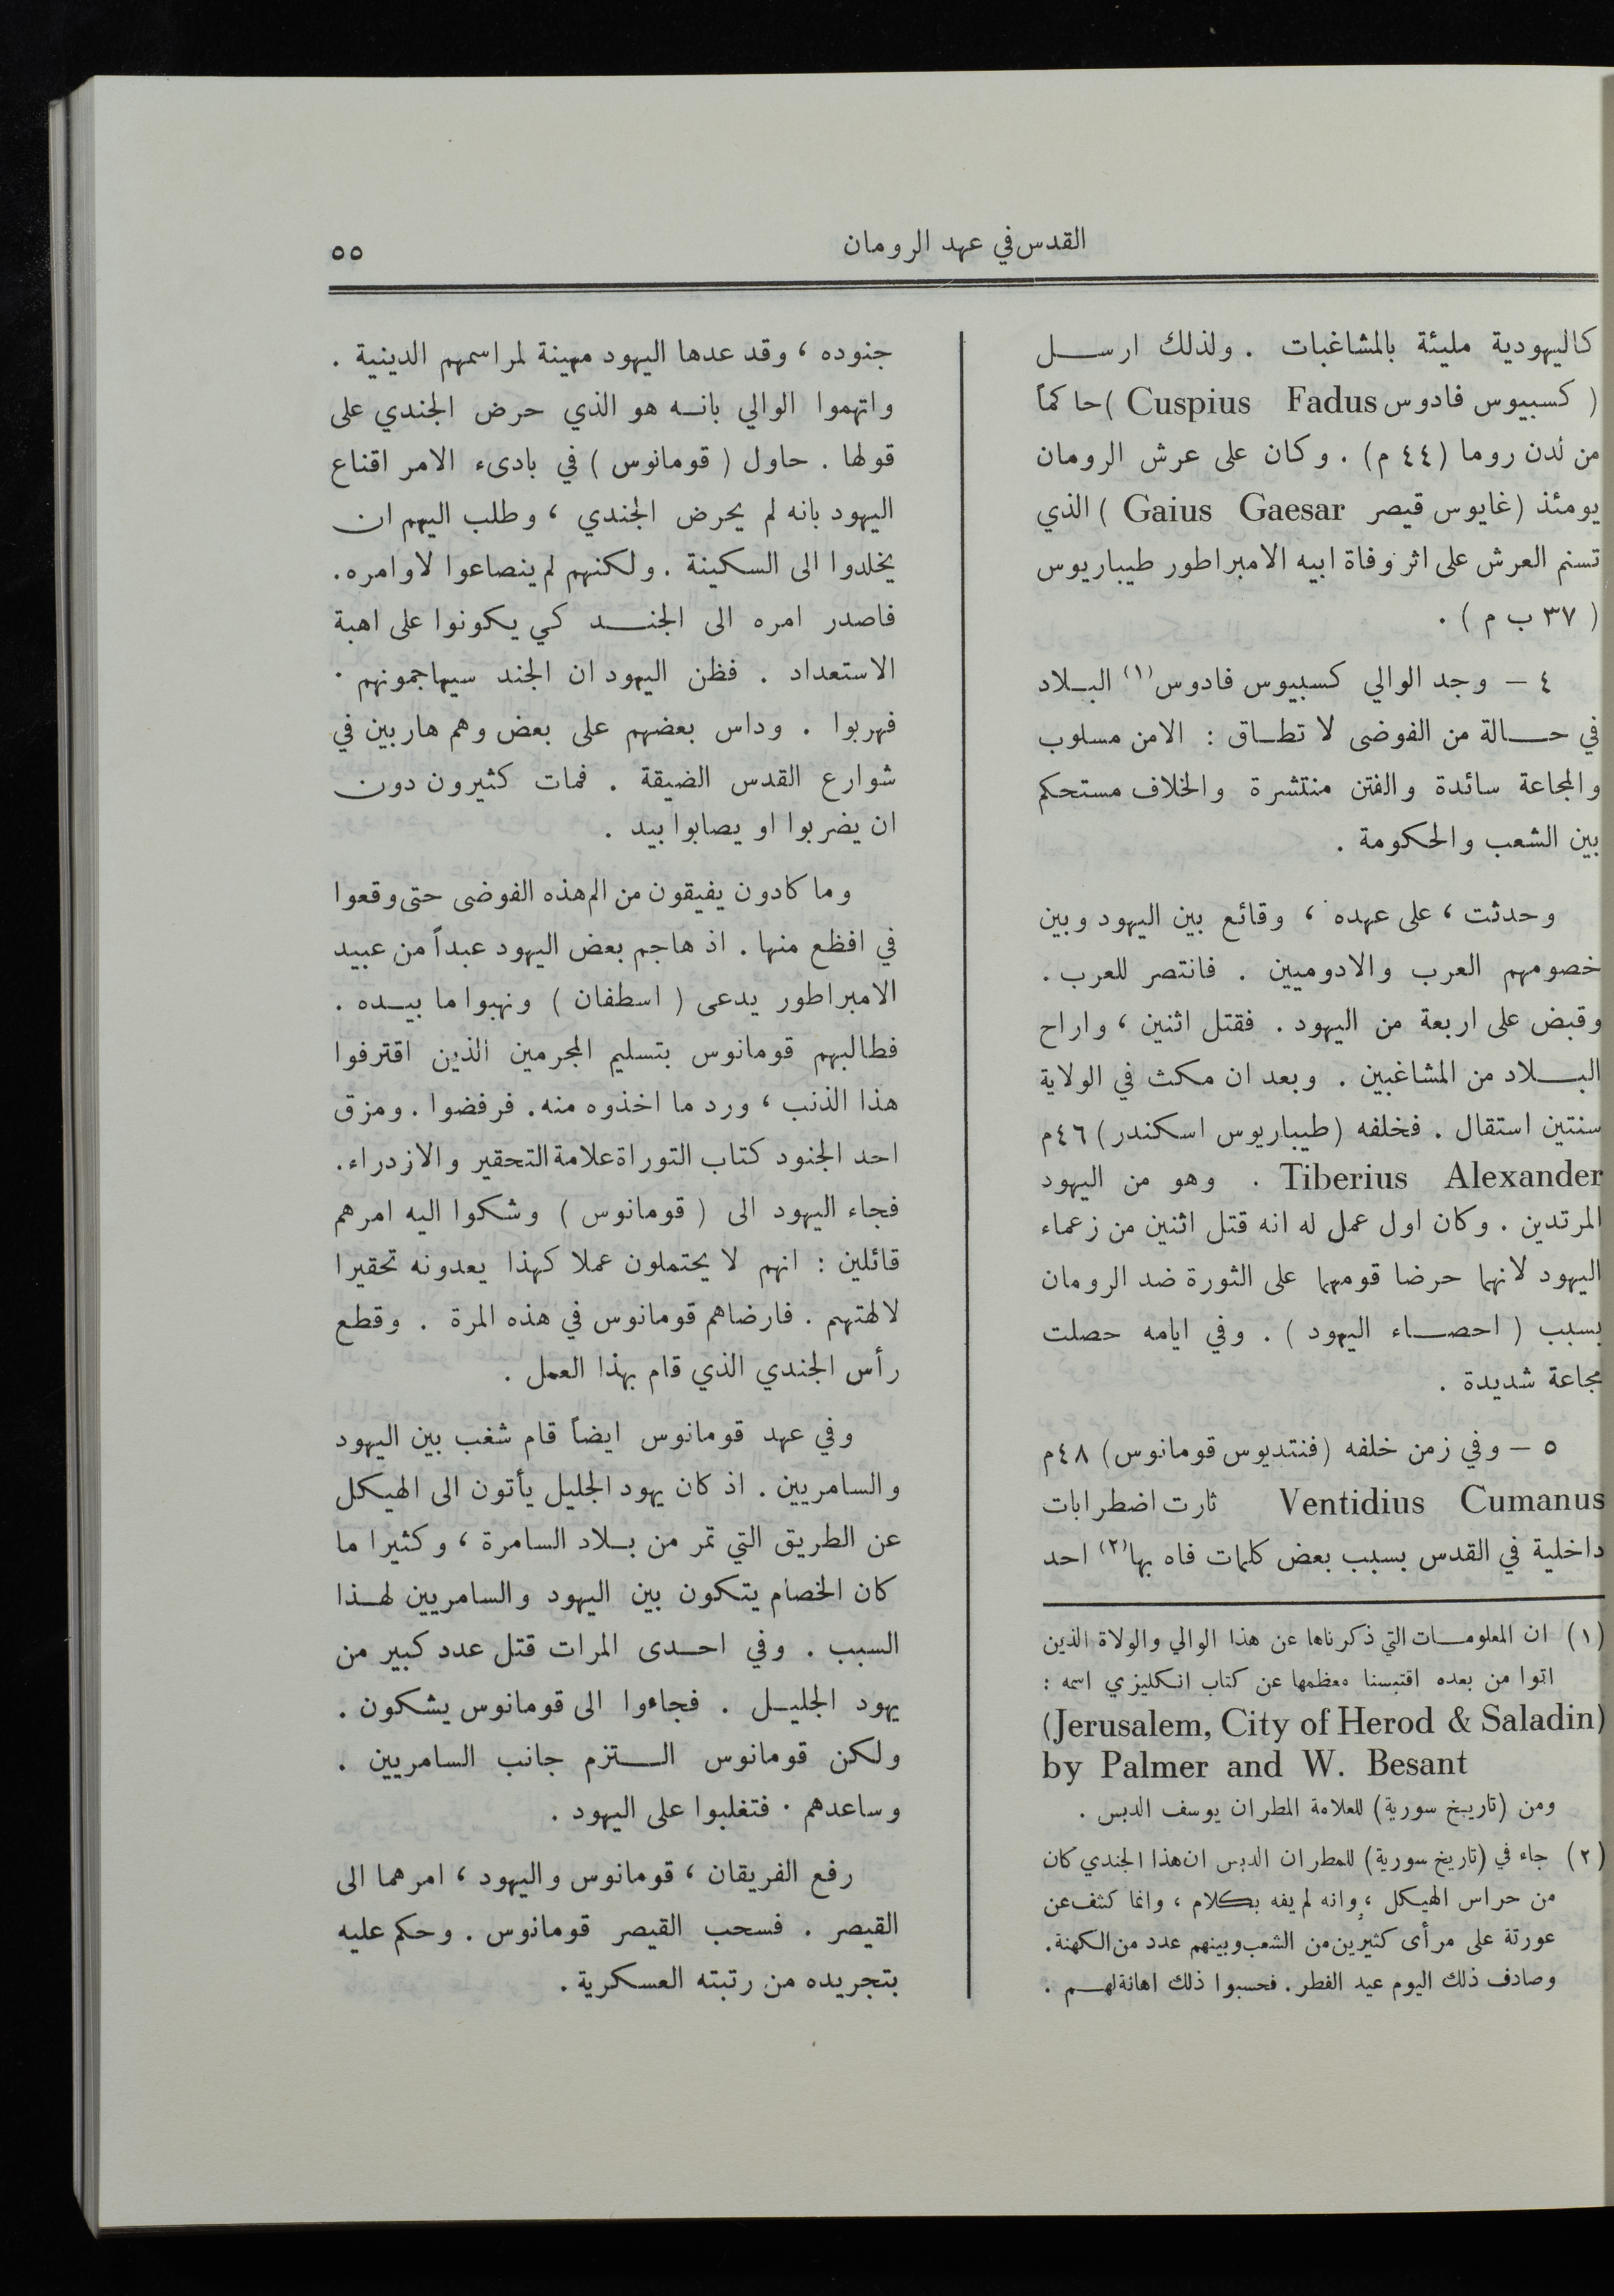 القدس في عهد الرومان
٥٥
كاليهودية مليئة بالمشاغبات . ولذلك ارســل
( كسبيوس فادوس Cuspius Fadus ) حاكماً
من لدن روما (٤٤ م) . وكان على عرش الرومان
يومئذ (غايوس قيصر Gaius Gaesar ) الذي
تسنم العرش على اثر وفاة ابيه الامبراطور طيباريوس
( ٣٧ ب م ) .
٤ – وجد الوالي كسبيوس فادوس(١) البـلاد
في حـــالة من الفوضى لا تطـاق : الامن مسلوب
والمجاعة سائدة والفتن منتشرة والخلاف مستحكم
بين الشعب والحكومة .
وحدثت ، على عهده ، وقائع بين اليهود وبين
خصومهم العرب والادوميين . فانتصر للعرب .
وقبض على اربعة من اليهود . فقتل اثنين ، واراح
البـــلاد من المشاغبين . وبعد ان مكث في الولاية
سنتين استقال . فخلفه (طيباريوس اسكندر) ٤٦م
Tiberius Alexander . وهو من اليهود
المرتدين . وكان اول عمل له انه قتل اثنين من زعماء
اليهود لانهما حرضا قومهما على الثورة ضد الرومان
بسبب ( احصـــاء اليهود ) . وفي ايامه حصلت
مجاعة شديدة .
٥ – وفي زمن خلفه (فنتديوس قومانوس) ٤٨م
Ventidius Cumanus ثارت اضطرابات
داخلية في القدس بسبب بعض كلمات فاه بها(٢) احد
(١) ان المعلومـــات التي ذكرناها عن هذا الوالي والولاة الذين
اتوا من بعده اقتبسنا معظمها عن كتاب انكليزي اسمه :
(Jerusalem, City of Herod & Saladin)
by Palmer and W. Besant
ومن (تاريـخ سورية) للعلامة المطران يوسف الدبس .
(٢) جاء في (تاريخ سورية) للمطران الدبس ان هذا الجندي كان
من حراس الهيكل ، وانه لم يفه بكلام ، وانما كشف عن
عورتة على مرأى كثيرين من الشعب وبينهم عدد من الكهنة.
وصادف ذلك اليوم عيد الفطر . فحسبوا ذلك اهانة لهــم .
جنوده ، وقد عدها اليهود مهينة لمراسمهم الدينية .
واتهموا الوالي بانــه هو الذي حرض الجندي على
قولها . حاول ( قومانوس ) في بادىء الامر اقناع
اليهود بانه لم يحرض الجندي ، وطلب اليهم ان
يخلدوا الى السكينة . ولكنهم لم ينصاعوا لاوامره.
فاصدر امره الى الجنــد كي يكونوا على اهبة
الاستعداد . فظن اليهود ان الجند سيهاجمونهم .
فهربوا . وداس بعضهم على بعض وهم هاربين في
شوارع القدس الضيقة . فمات كثيرون دون
ان يضربوا او يصابوا بيد .
وما كادون يفيقون من الم هذه الفوضى حتى وقعوا
في افظع منها . اذ هاجم بعض اليهود عبداً من عبيد
الامبراطور يدعى ( اسطفان ) ونهبوا ما بيــده .
فطالبهم قومانوس بتسليم المجرمين الذين اقترفوا
هذا الذنب ، ورد ما اخذوه منه. فرفضوا . ومزق
احد الجنود كتاب التوراة علامة التحقير والازدراء.
فجاء اليهود الى ( قومانوس ) وشكوا اليه امرهم
قائلين : انهم لا يحتملون عملا كهذا يعدونه تحقيرا
لالهتهم . فارضاهم قومانوس في هذه المرة . وقطع
رأس الجندي الذي قام بهذا العمل .
وفي عهد قومانوس ايضاً قام شغب بين اليهود
والسامريين . اذ كان يهود الجليل يأتون الى الهيكل
عن الطريق التي تمر من بــلاد السامرة ، وكثيرا ما
كان الخصام يتكون بين اليهود والسامريين لهــذا
السبب . وفي احــدى المرات قتل عدد كبير من
يهود الجليــل . فجاءوا الى قومانوس يشكون .
ولكن قومانوس الــتزم جانب السامريين .
وساعدهم . فتغلبوا على اليهود .
رفع الفريقان ، قومانوس واليهود ، امرهما الى
القيصر . فسحب القيصر قومانوس . وحكم عليه
بتجريده من رتبته العسكرية .